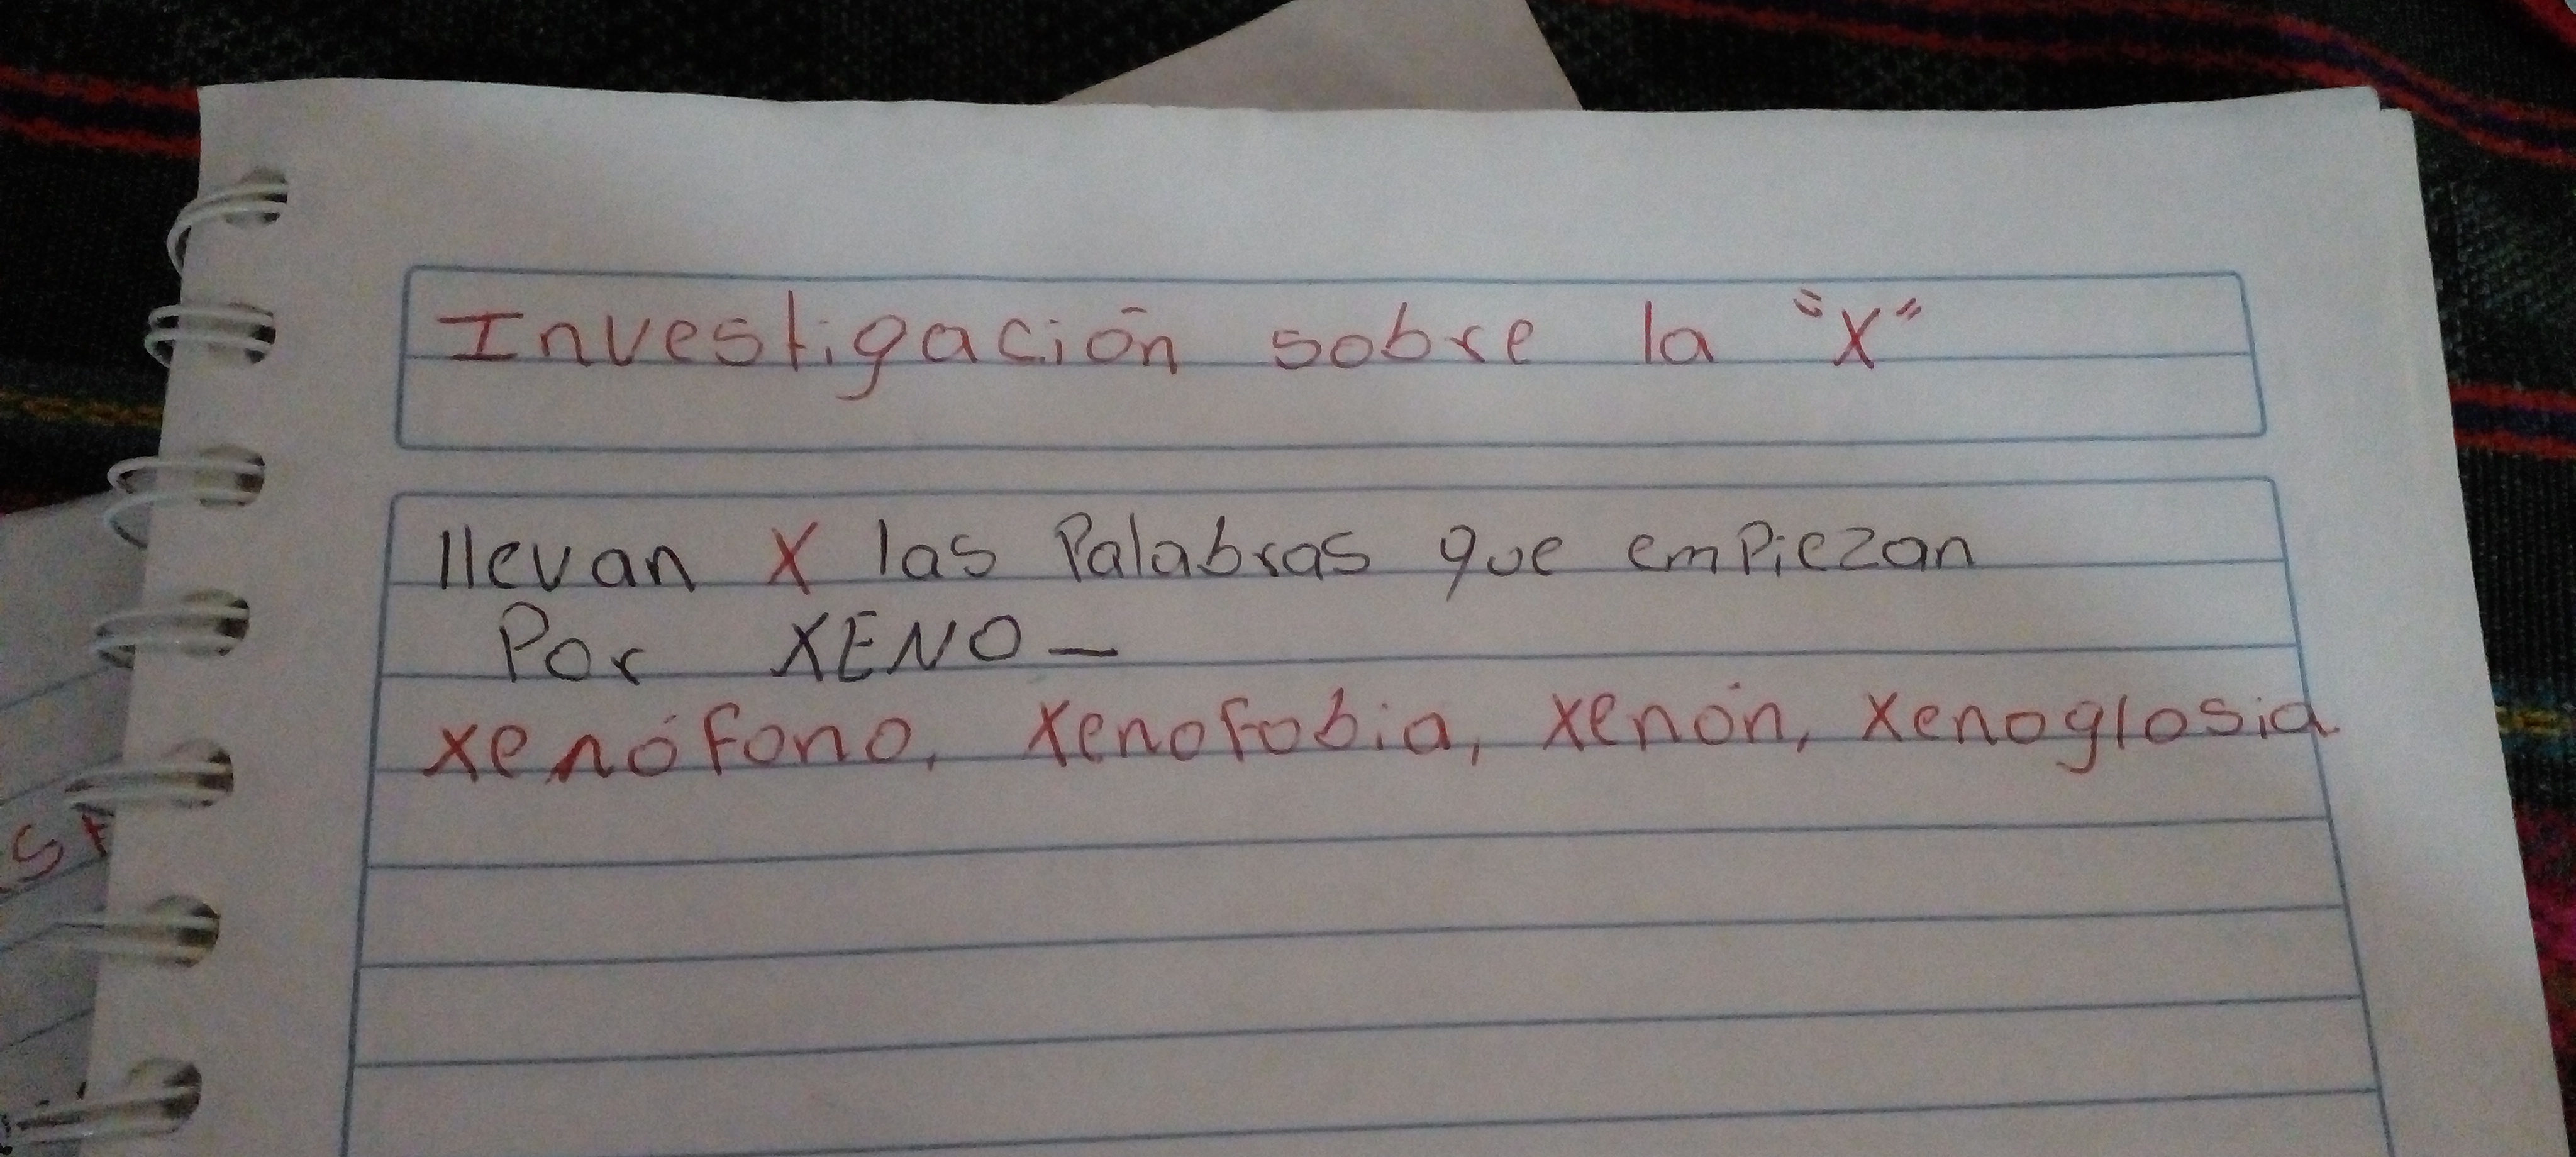 Investigación sobre la "X"
llevan X las Palabras que empiezan
Por XENO-
xenófono, xenofobia, xenón, xenoglosia